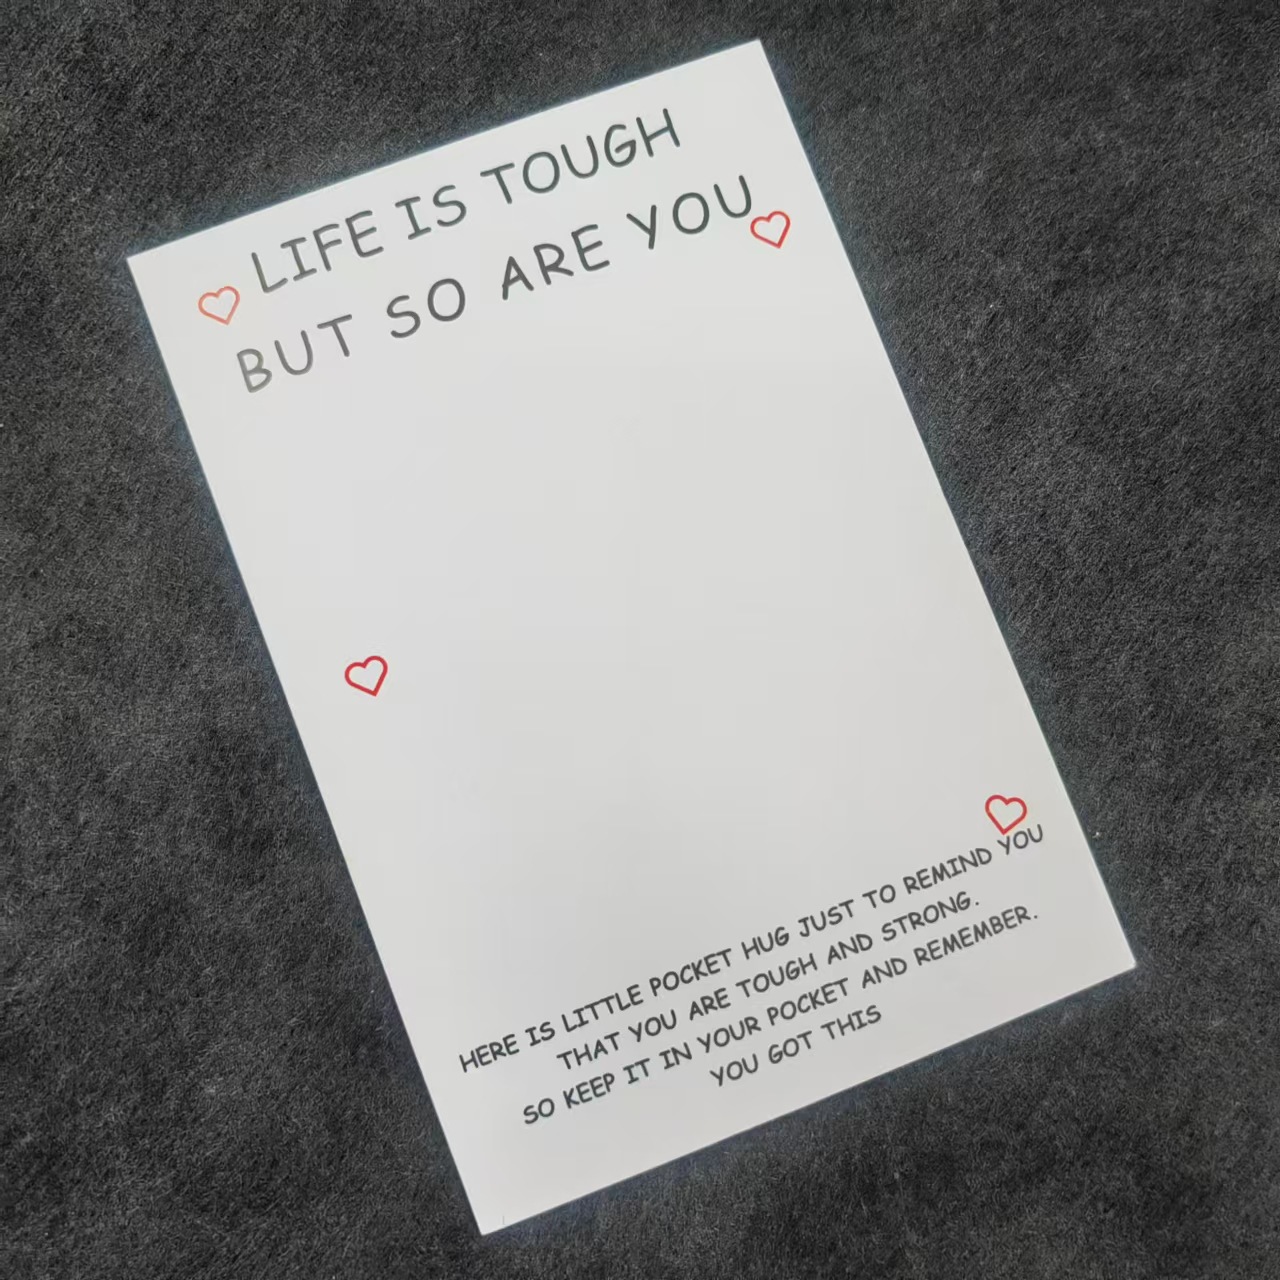 LIFE IS TOUGH
BUT SO ARE YOU
HERE IS LITTLE POCKET HUG JUST TO REMIND YOU
THAT YOU ARE TOUGH AND STRONG.
SO KEEP IT IN YOUR POCKET AND REMEMBER.
YOU GOT THIS